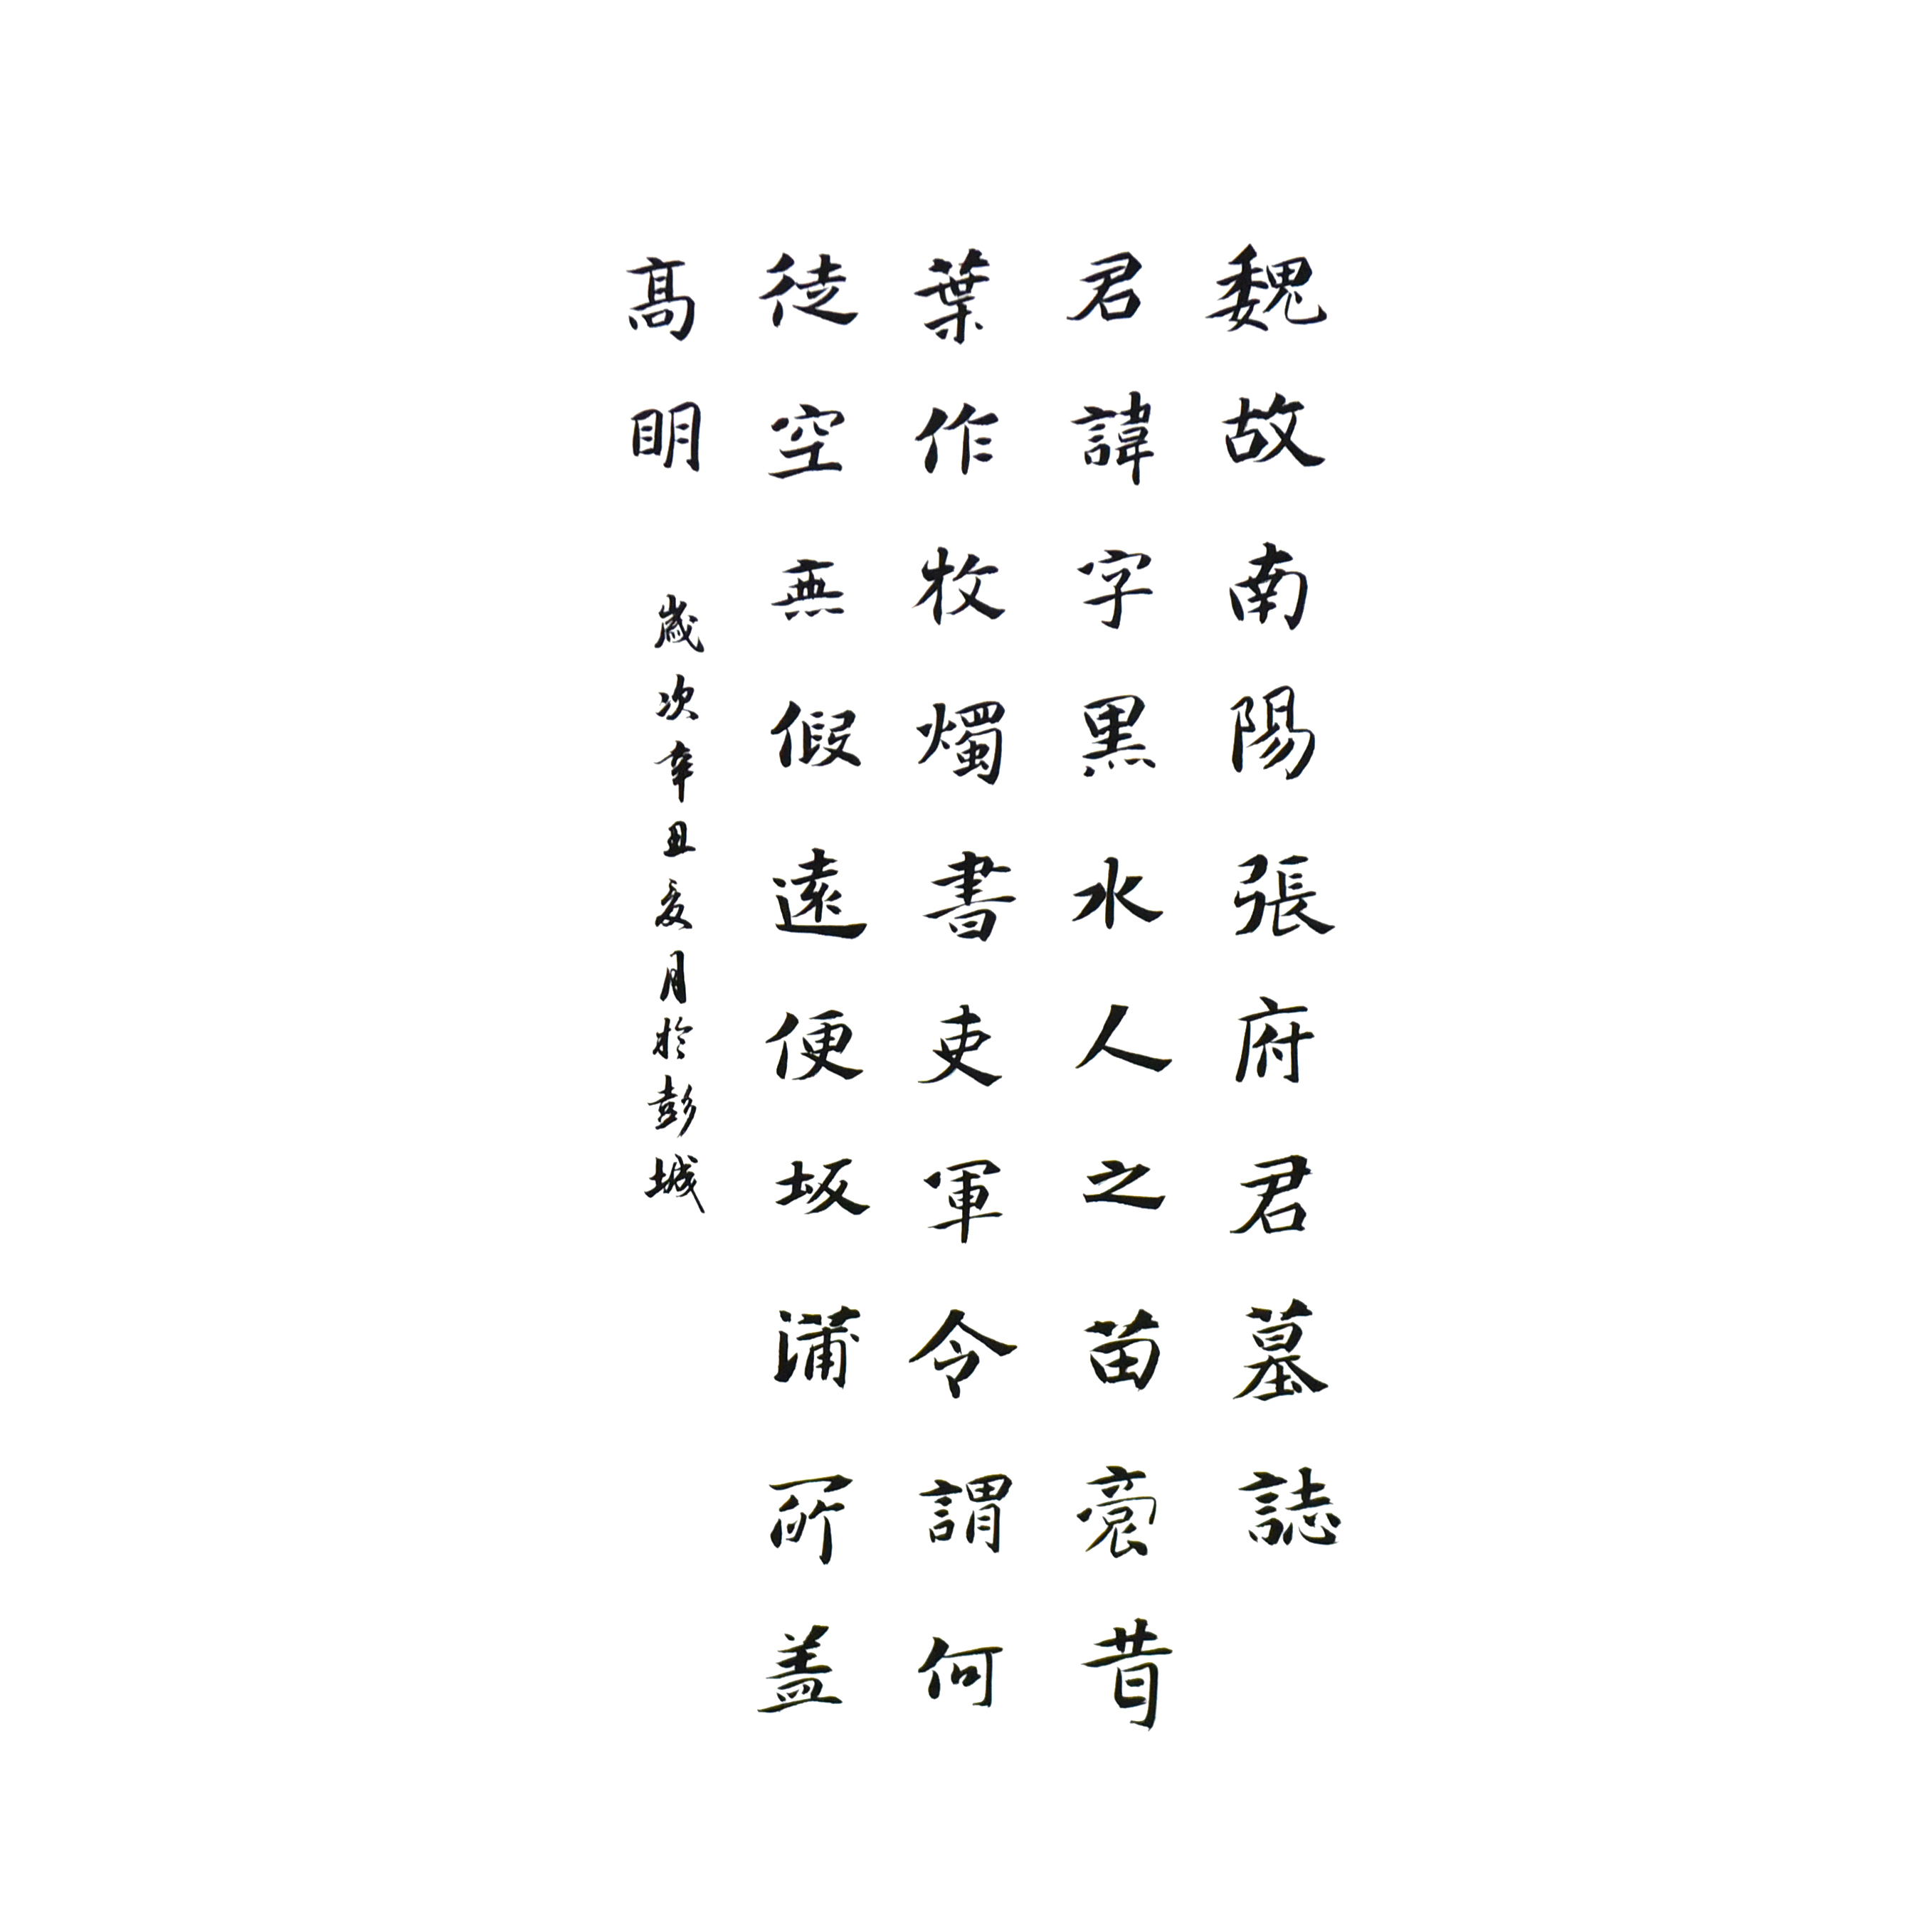 魏故南陽張府君墓誌
君諱字黑水人之苗裔昔
葉作牧燭書吏軍令謂何
徒空無假遠便坂蒲所盖
高明
歲次辛丑夏月於彭城